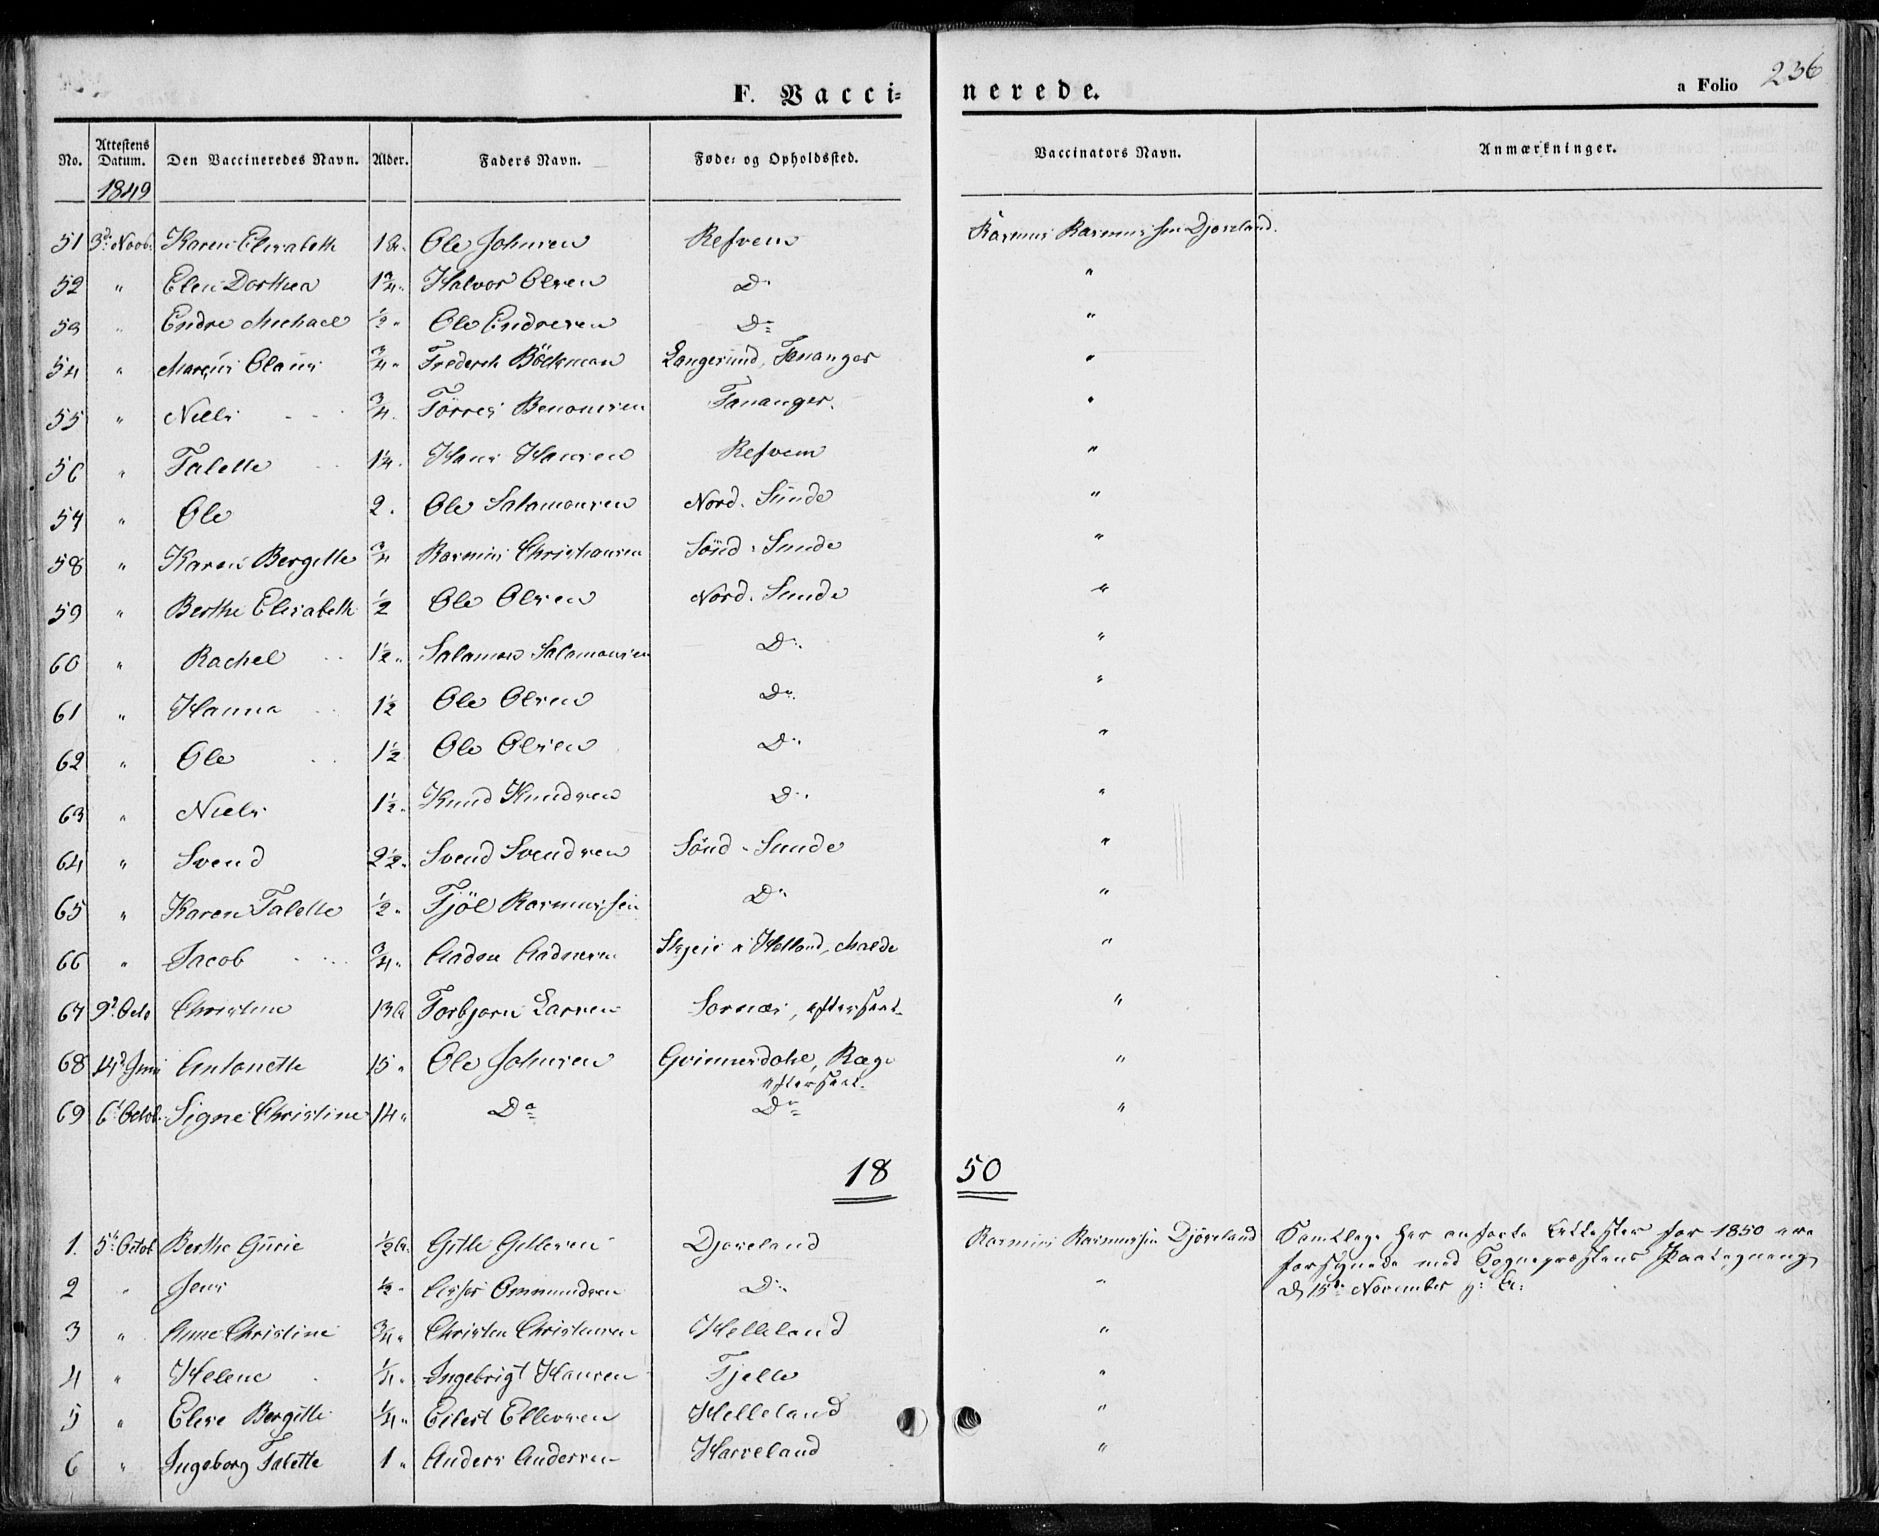 F. Vacci=nerede.
a Folio 236
No. Attestens Datum. Den Vaccineredes Navn. Alder. Faders Navn. Føde= og Opholdssted. Vaccinators Navn. Anmærkninger.
1849
51 3d Novb. Karen Elisabeth 1 Ole Johnsen Refvem Rasmus Rasmussen Djoseland.
52 " Elen Dorthea 1 3/4 " Halvor Olsen Do "
53 " Endre Michael 1/2 " Ole Endresen Do "
54 " Marcus Claus 3/4 " Frederik Böckman Langesund, Tananger "
55 " Niels 3/4 Törres Tananger. "
56 " Talette 1 1/4 Hans Hansen Refvem "
57 " Ole 2. Ole Salamonsen Nord. Sunde "
58 " Karen Bergitte 3/4 Rasmus Christiansen Sönd. Sunde "
59 " Berthe Elisabeth 1/2 Ole Olsen Nord. Sunde "
60 " Rachel 1 1/2 " Salamon Salamonsen Do "
61 " Hanna 1 1/2 Ole Olsen Do "
62 " Ole 1 1/2 Ole Olsen Do "
63 " Niels 1 1/2 " Knud Knudsen Do "
64 " Svend 2 1/2 " Svend Svendsen Sönd. Sunde "
65 " Karen Talette 1/2 " Tjöl Rasmussen Do "
66 " Jacob 3/4 " Aaden Aadnesen Skjeie i Helland, Malde "
67 9d Octo Christine 13 Torbjorn Larsen Sornæs, "
68 14d Juni Antonette 15 " Ole Johnsen Ræge "
69 6t Octob. Signe Christine 14 " Do Do "
18 50
1. 5t Octob Berthe Gurie 1/2 Gitle Gitlesen Djoseland Rasmus Rasmussen Djöseland Samtlige her anførte Attester for 1850 ere
forsynede med Sognepræstens Paategning
2 " Jens 1/2 " Ommundsen Do " d 15de November
3 " Anne Christine 3/4 " Christen Christensen Helleland "
4 " Helene 1/4 " Ingebrigt Hansen Tjelle "
5 " Elise Bergitte 1/4 " Eilert Ellevsen Helleland "
6 " Ingeborg Talette 1 " Anders Andersen Harveland "